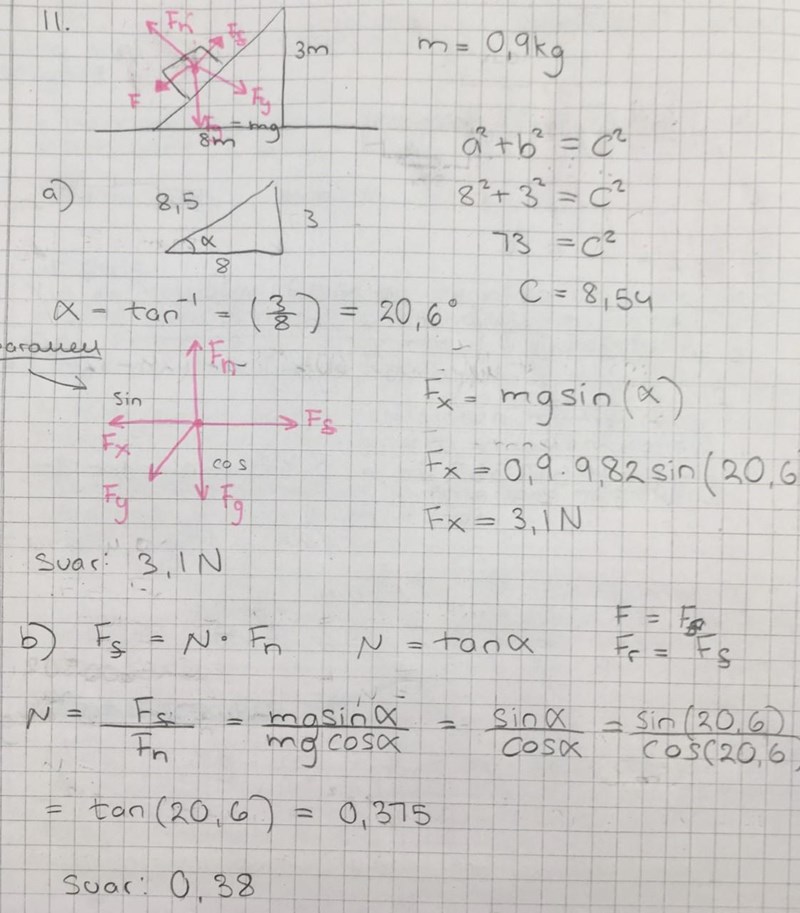 11.
Fn
Fs
3m
m = 0,9kg
F
Fy
Fg = mg
8m
a² + b² = c²
a)
8,5
3
α
8
8² + 3² = c²
73 = c²
c = 8,54
α - tan⁻¹ = (3/8) = 20,6°
Fn
sin
Fs
Fx
cos
Fy
Fg
Fx = mg sin(α)
Fx = 0,9 · 9,82 sin(20,6
Fx = 3,1N
Svar: 3,1N
b) Fs = N · Fn
N = tanα
F =
Fr = Fs
N = Fs/Fn = mg sinα/mg cosα = sinα/cosα = sin(20,6)/cos(20,6
= tan(20,6) = 0,375
Svar: 0,38